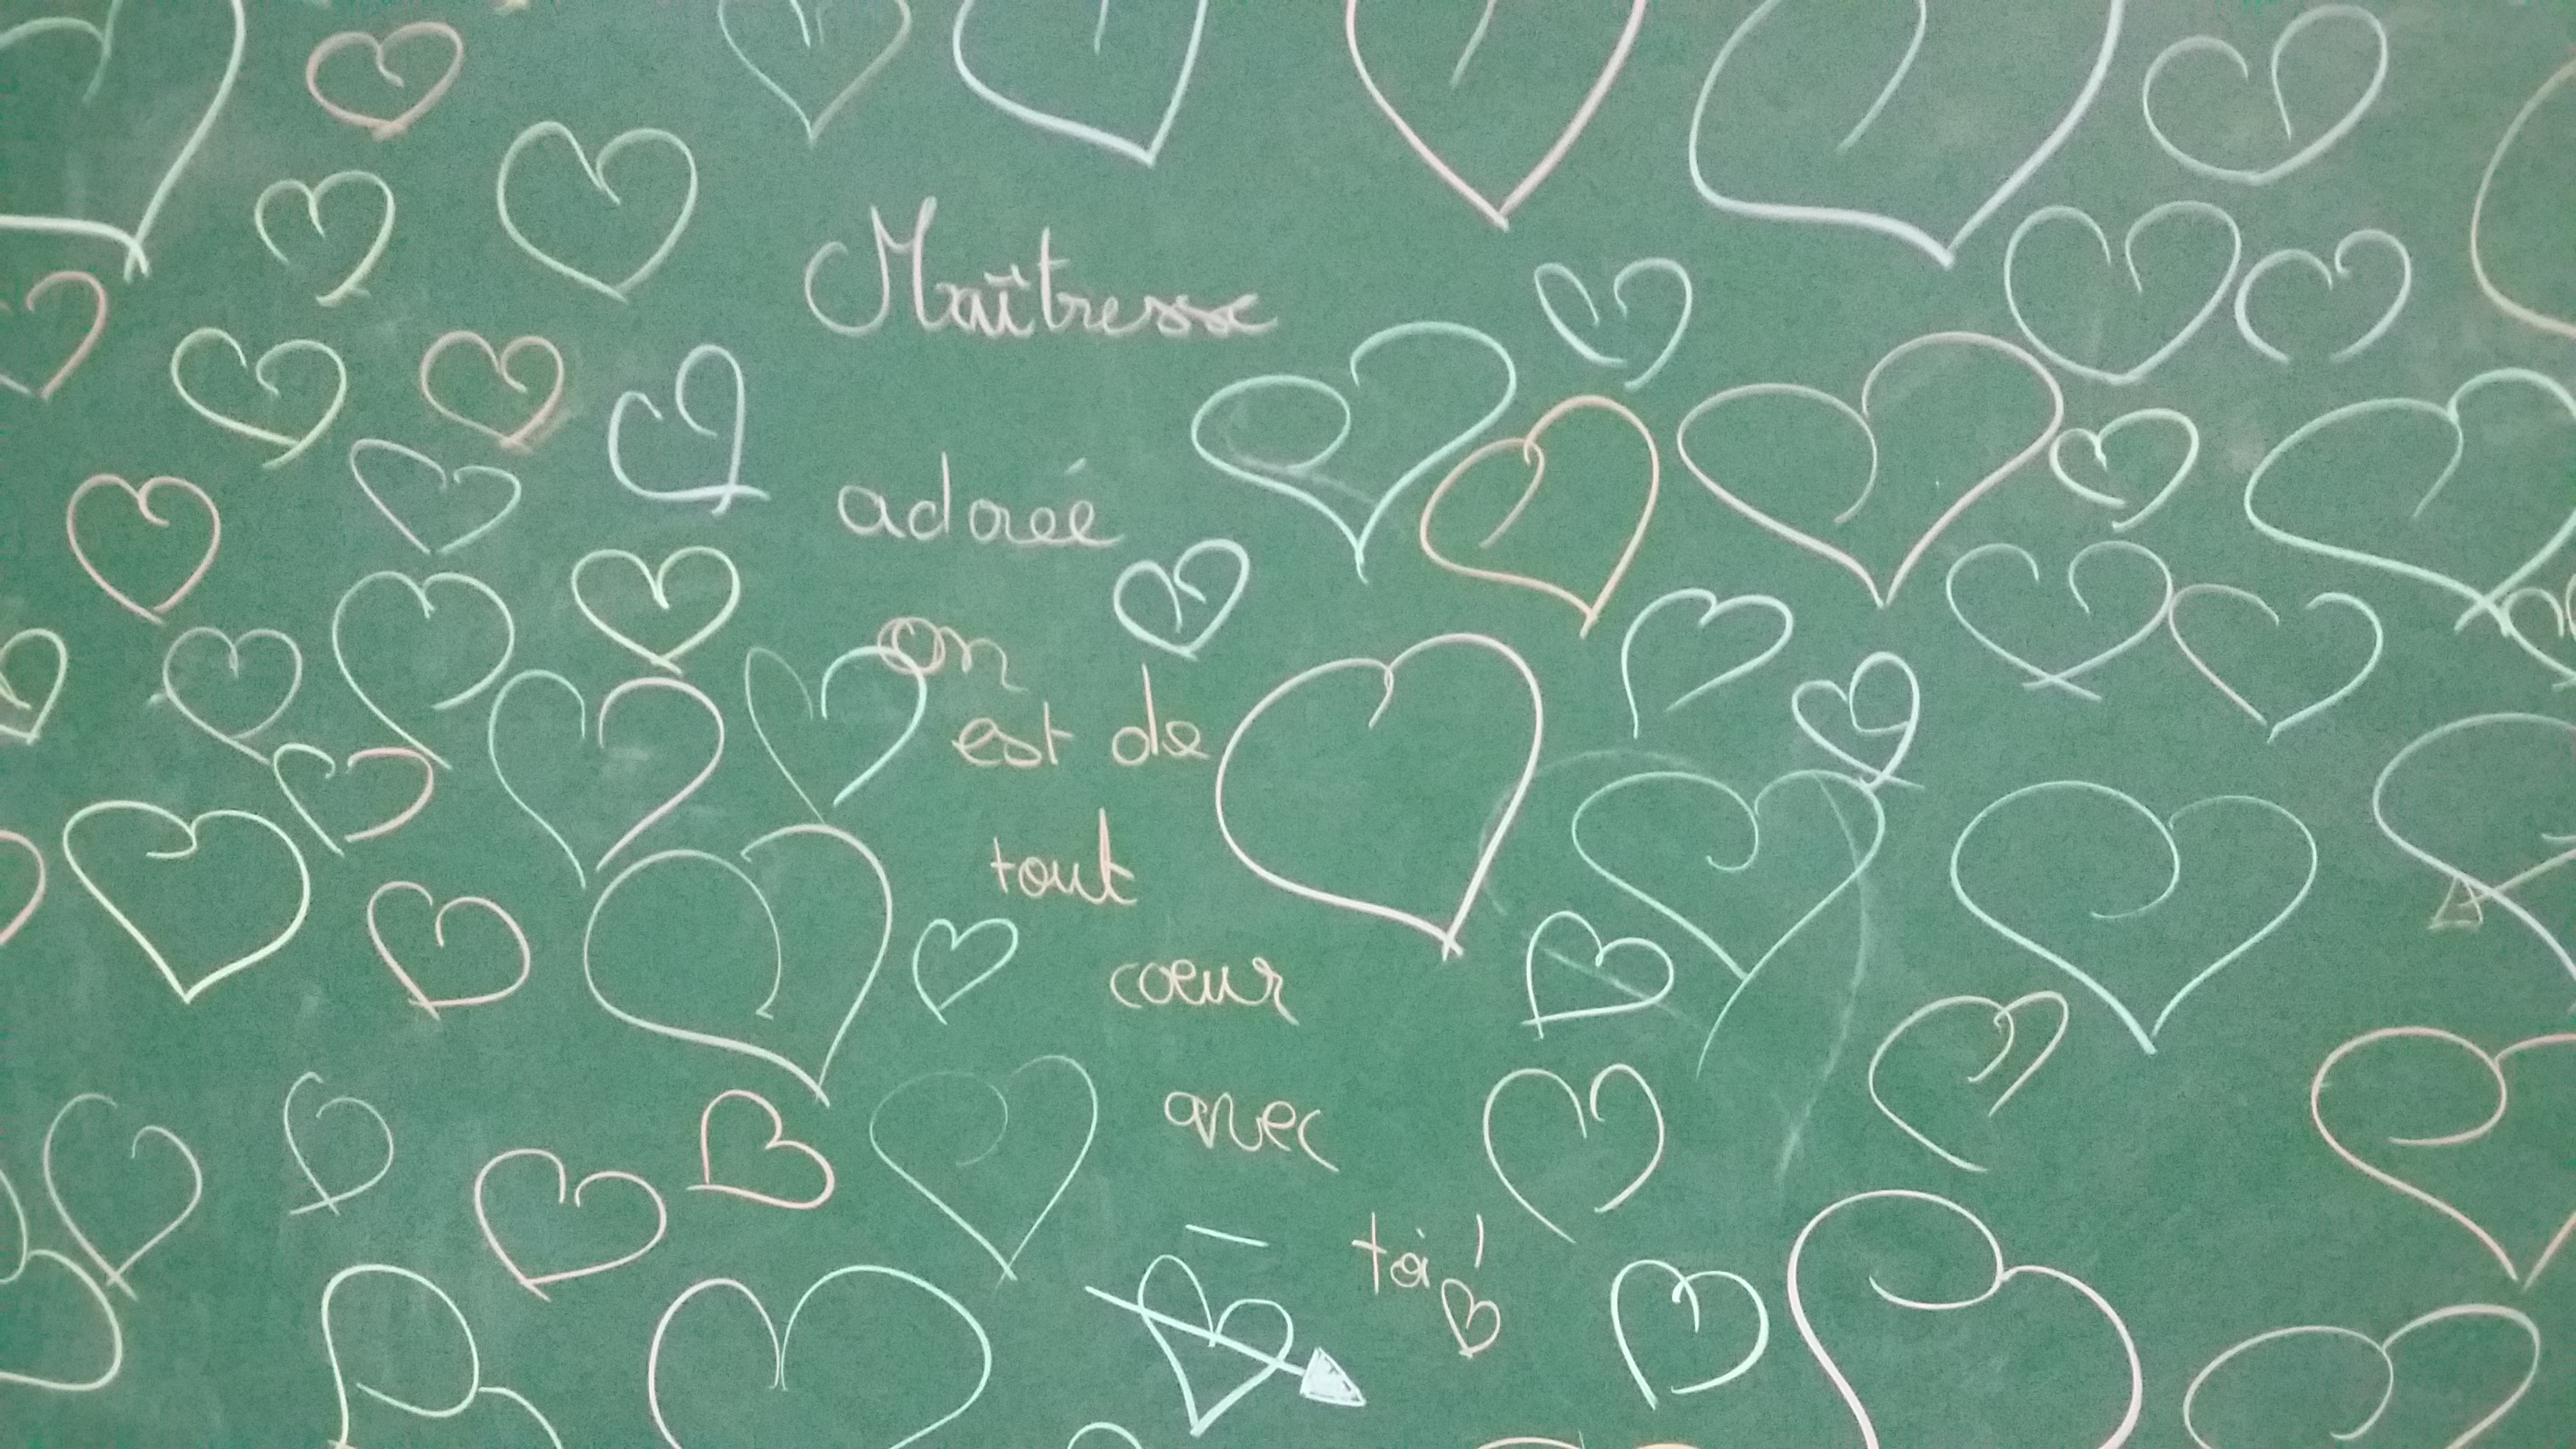 Maîtresse
adorée
on
est de
tout
coeur
avec
toi !